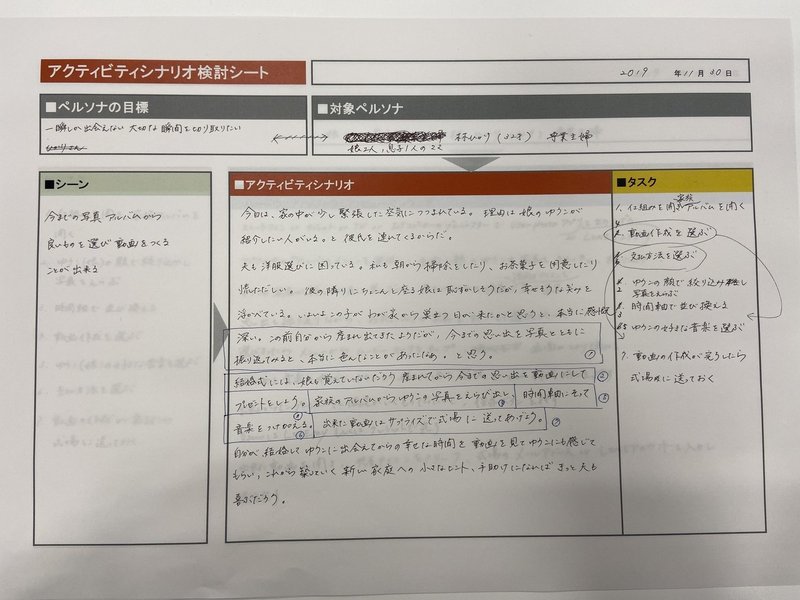 アクティビティシナリオ検討シート
2019 年 11 月 30 日
■ペルソナの目標
一瞬しか出会えない大切な瞬間を切り取りたい
■対象ペルソナ
林ひかり (32才) 専業主婦
娘2人、息子1人のママ
■シーン
今までの写真アルバムから
良いものを選び動画をつくる
ことが出来る
■アクティビティシナリオ
今日は、家の中が少し緊張した空気につつまれている。理由は娘のゆうこが
紹介したい人がいる。と彼氏を連れてくるからだ。
夫も洋服選びに困っている。私も朝から掃除をしたり、お茶菓子を用意したり
慌ただしい。彼の隣りにちょこんと座る娘は恥ずかしそうだが、幸せそうな笑みを
浮かべている。いよいよこの子がわが家から巣立つ日が来たかと思うと、本当に感慨
深い。この前自分から産まれ出てきたようだが、今までの思い出を写真とともに
振り返てみると、本当に色んなことがあったなぁ。と思う。 ①
結婚式には、娘も覚えていないだろう産まれてから今までの思い出を動画にして ②
プレゼントをしよう。家族のアルバムからゆうこの写真をえらび出し、時間軸にそって
音楽をつけ加える。出来た動画はサプライズで式場に送ってあげよう。
自分が結婚してゆうこに出会えてからの幸せな時間を動画を見てゆうこにも感じて
もらい、これから築いていく新しい家庭への小さなヒント、手助けになればきっと夫も
喜ぶだろう。
■タスク
家族
1. 仕組みを開きアルバムを開く
動画作成を選ぶ
支払方法を選ぶ
ゆうこの顔で絞り込み
写真をえらぶ
時間軸で並び換える
ゆうこの好きな音楽を選ぶ
7. 動画の作成が完了したら
式場に送っておく